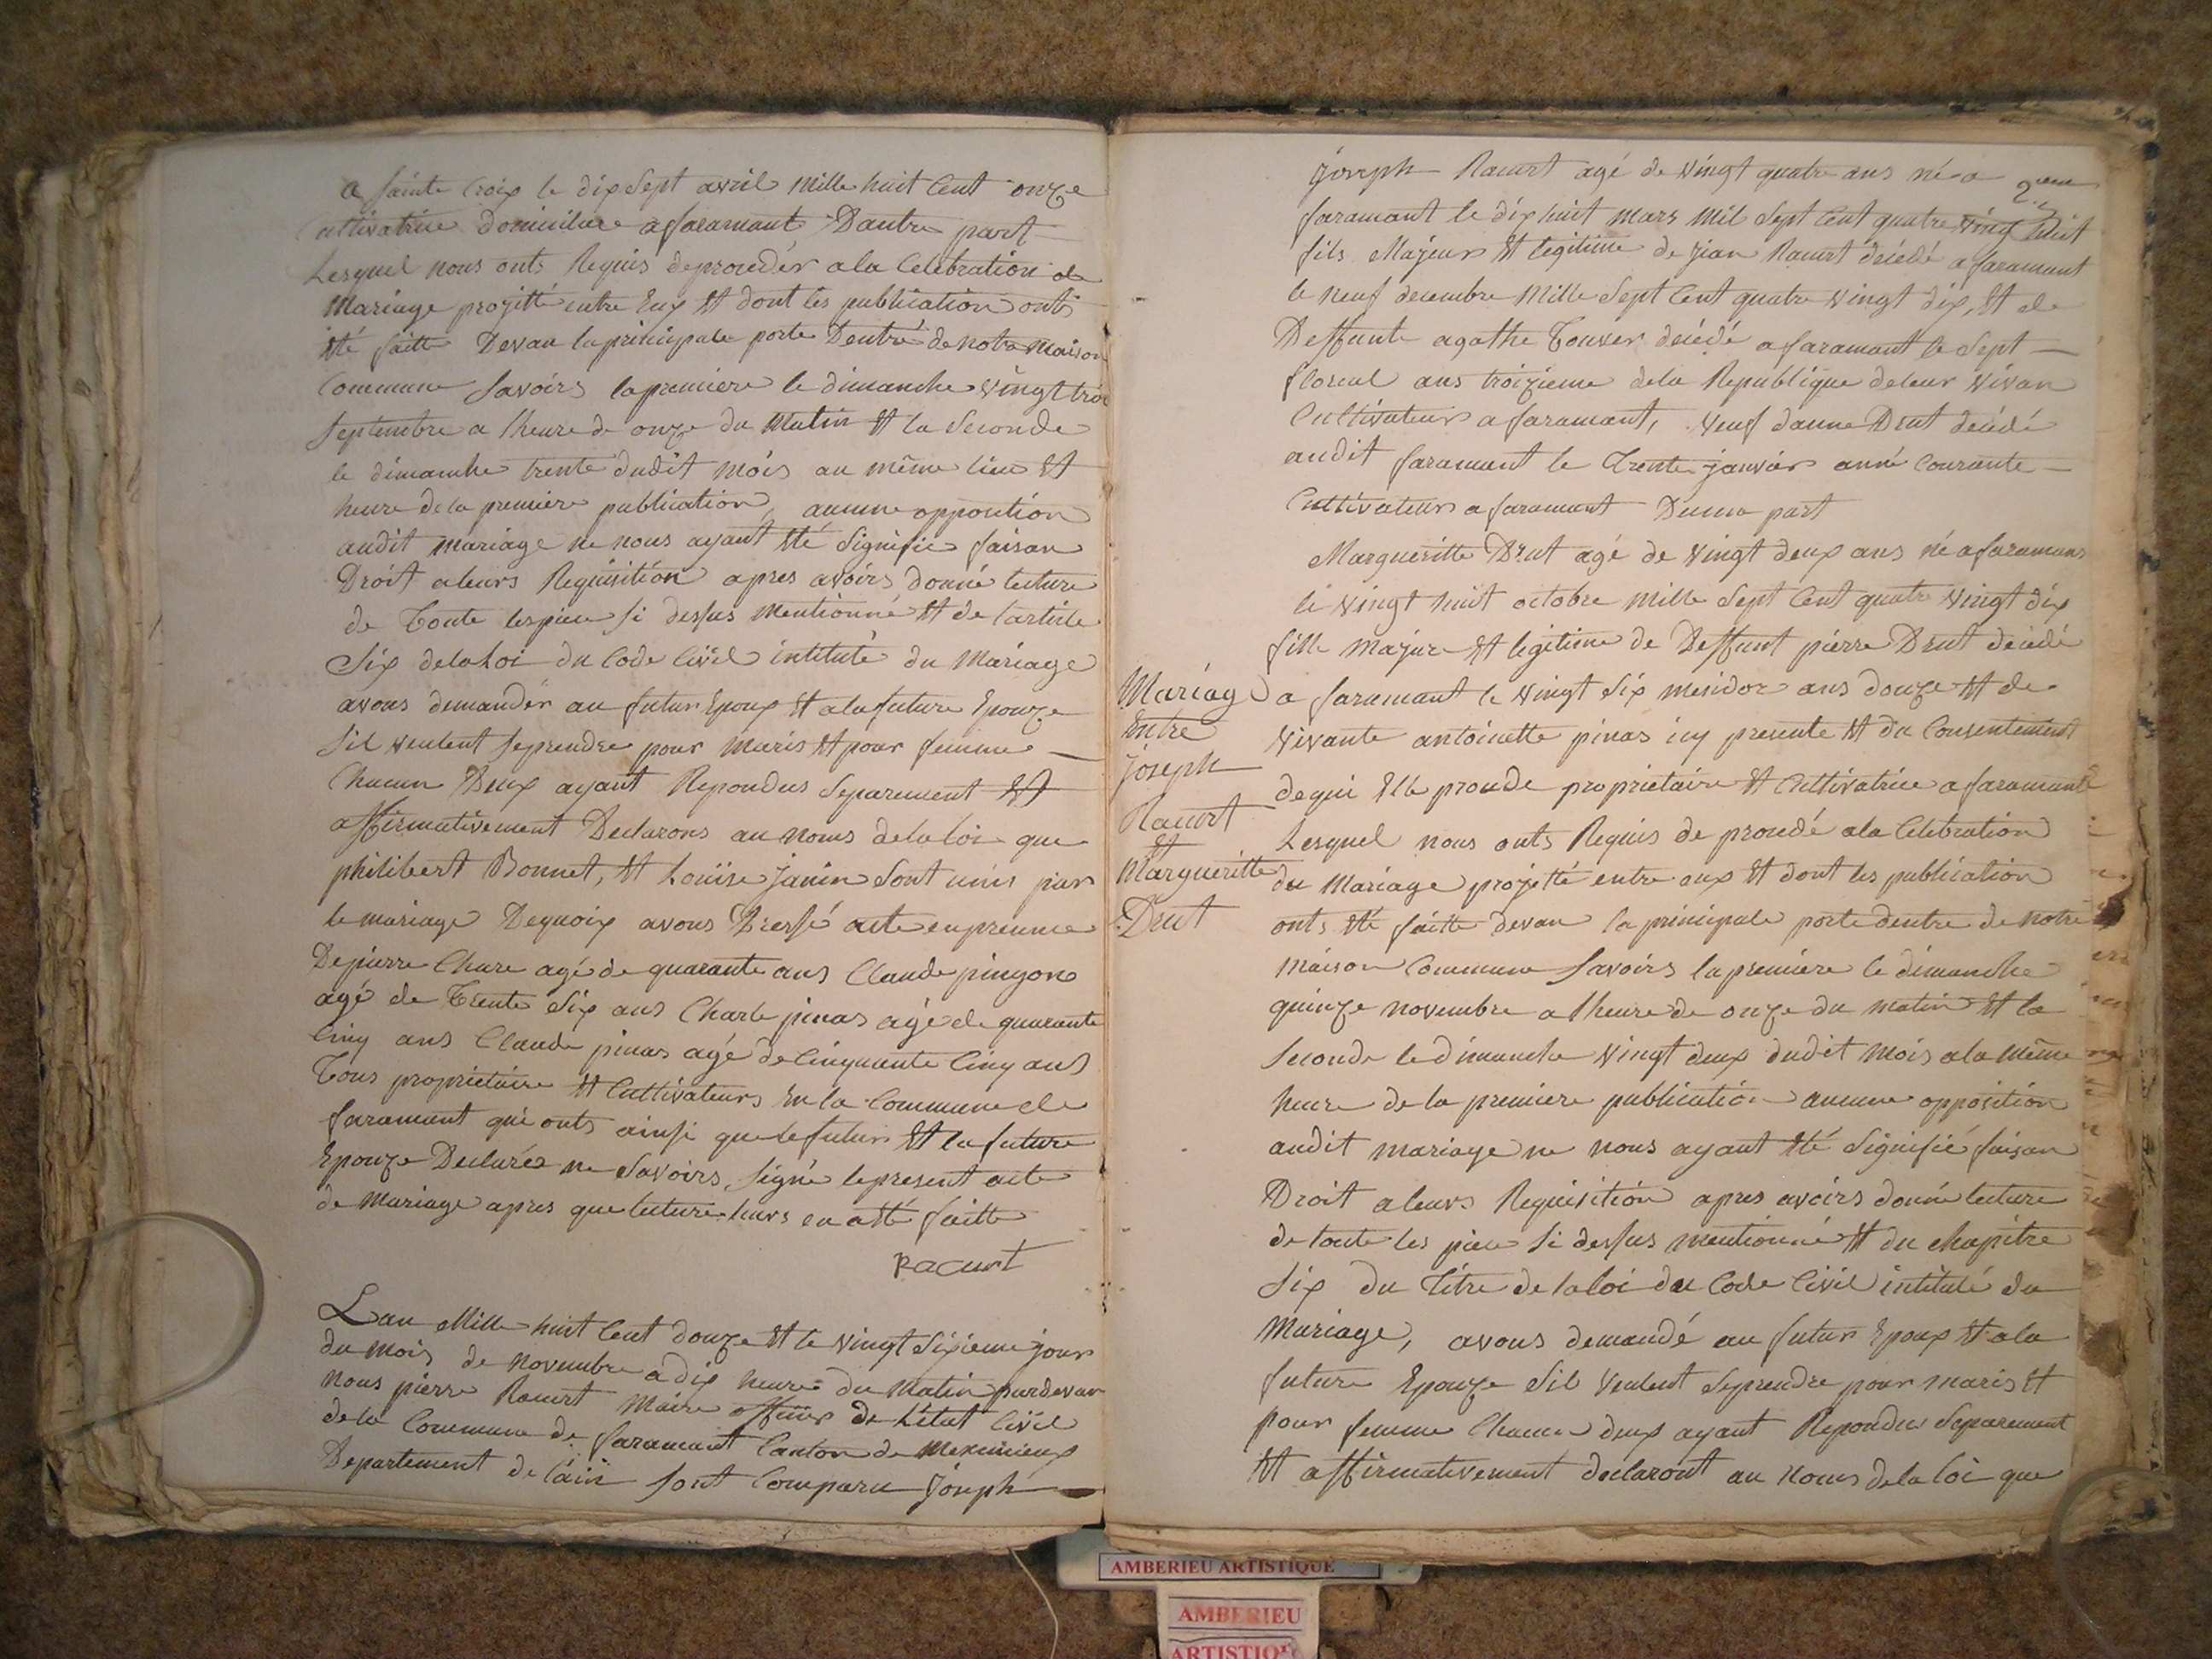 a Sainte Croix le dix Sept avril Mille huit Cent onze
Cultivatrice domiciliée a faramant Dautre part
Lesquel nous onts Requis deprocedér ala Celebration de
Mariage projetté entre Eux Et dont les publication onts
Eté faitte Devan la principale porte Dentré de notre Maison
Commune Savoirs la premiere le dimanche vingt trois
Septembre a lheure de onze du Matin Et la Seconde
le dimanche trente dudit mois au même lieu Et
heure de la premiere publication, aucune opposition
audit mariage ne nous ayant Eté Signifié faisan
Droit a leurs Requisition apres avoirs donné lecture
de Toute les piece Si dessus Mentionné Et de larticle
Six de la Loi du Code Civil intitulé du Mariage
avons demandér au futur Epoux Et a la future Epouze
Sil veulent Seprendre pour maris Et pour femme
Chacun Deux ayant Repondus Separement Et
affirmativement Declarons au noms dela loi que
philibert Bonnet, Et Louise Janin Sont unis par
le mariage Dequoix avons Dressé acte en presence
De pierre Chare agé de quarante ans Claude pingon
agé de Trente Six ans Charle pinas agé de quarante
Cinq ans Claude pinas agé de Cinquante Cinq ans
Tous propriétaire Et Cultivateurs En la Commune de
faramant qui onts ainsi que le futur Et la future
Epouze Declarés ne Savoirs Signé le present acte
de Mariage apres que lecture leurs en a Eté faitte
Racurt
Lan Mille huit Cent douze Et le vingt Sixieme jour
du mois de novembre a dix heure du Matin pardevan
nous pierre Racurt Maire officier de Létat Civil
de la Commune de faramant Canton de Meximieux
Departement de lain Sont Comparu Joseph
2eme
Joseph Racurt agé de vingt quatre ans né a
faramant le dix huit mars Mil Sept Cent quatre vingt huit
fils Majeur Et legitime de Jean Racurt décédé a faramant
le neuf decembre Mille Sept Cent quatre vingt dix, Et de
Deffunte agathe Touver décédé a faramant le Sept
floreal ans troizieme dela Republique de leur vivan
Cultivateurs a faramant, veuf danne Drut décédé
audit faramant le Trente janvier anné Courante
Cultivateur a faramant Dunne part
Margueritte Drut agé de vingt deux ans né a faramans
le vingt huit octobre Mille Sept Cent quatre vingt dix
fille majure Et legitime de Deffunt pierre Drut décédé
a faramant le vingt Six mesidor ans douze Et de
vivante antoinette pinas icy presente Et du Consentement
de qui Elle procede proprietaire Et Cultivatrice a faramant
Lesquel nous onts Requis de procedé ala Celebration
du Mariage projetté entre eux Et dont les publication
onts Eté faitte devan la principale porte dentre de notre
maison Commune Savoirs la premiere le dimanche
quinze novembre a lheure de onze du matin Et la
Seconde le dimanche vingt deux dudit mois ala même
heure de la premiere publication aucune opposition
audit mariage ne nous ayant Eté Signifié faisan
Droit a leurs Requisition apres avoirs donné lecture
de toute les piece Si dessus mentionné Et du chapitre
Six du Titre de la loi du Code Civil intitulé du
Mariage, avons demandé au futur Epoux Et a la
future Epouze Sil veulent Seprendre pour maris Et
pour femme Chacun deux ayant Repondu Separement
Et affirmativement declaront au Noms de la loi que
Mariage
Entre
Joseph
Racurt
Et
Margueritte
Drut
AMBERIEU ARTISTIQUE
AMBERIEU
ARTISTIQ